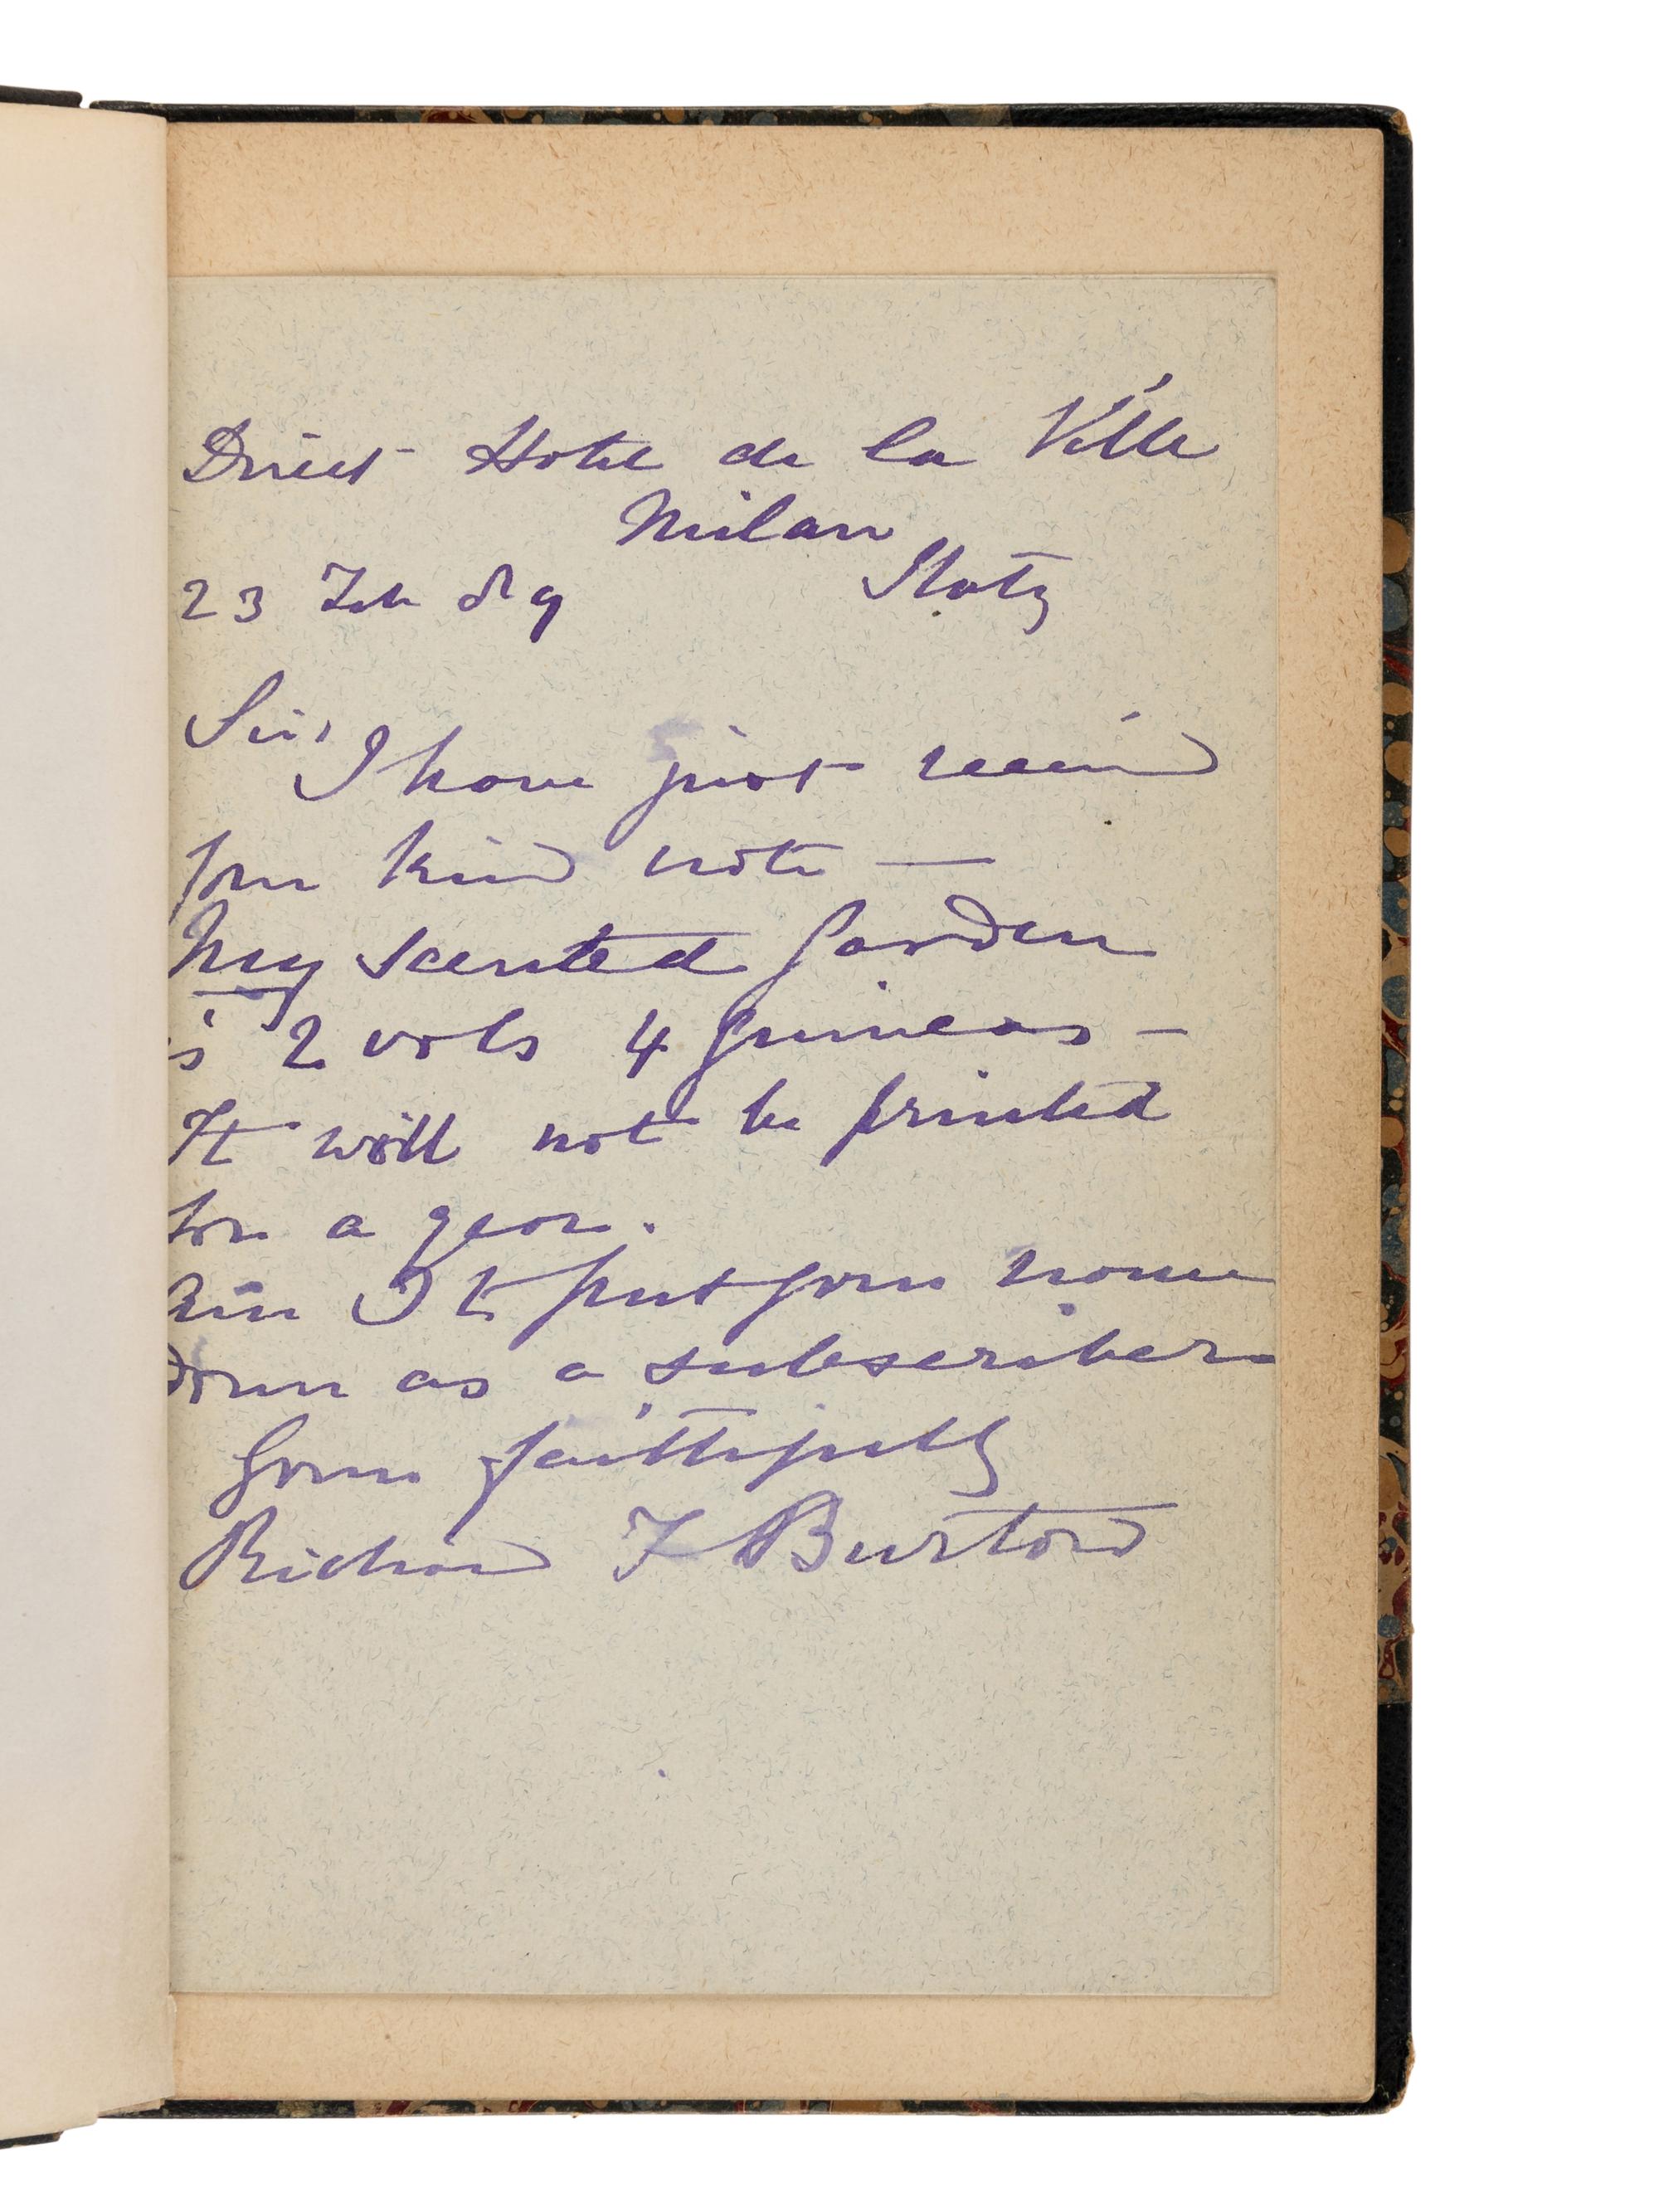 Direct Hotel de la Ville
Milan
23 Feb 89 Italy
Sir,
I have just received
your kind note —
My scented Garden
is 2 vols 4 guineas —
It will not be printed
for a year.
Am I to put your name
down as a subscriber
Yours faithfully
Richard F Burton